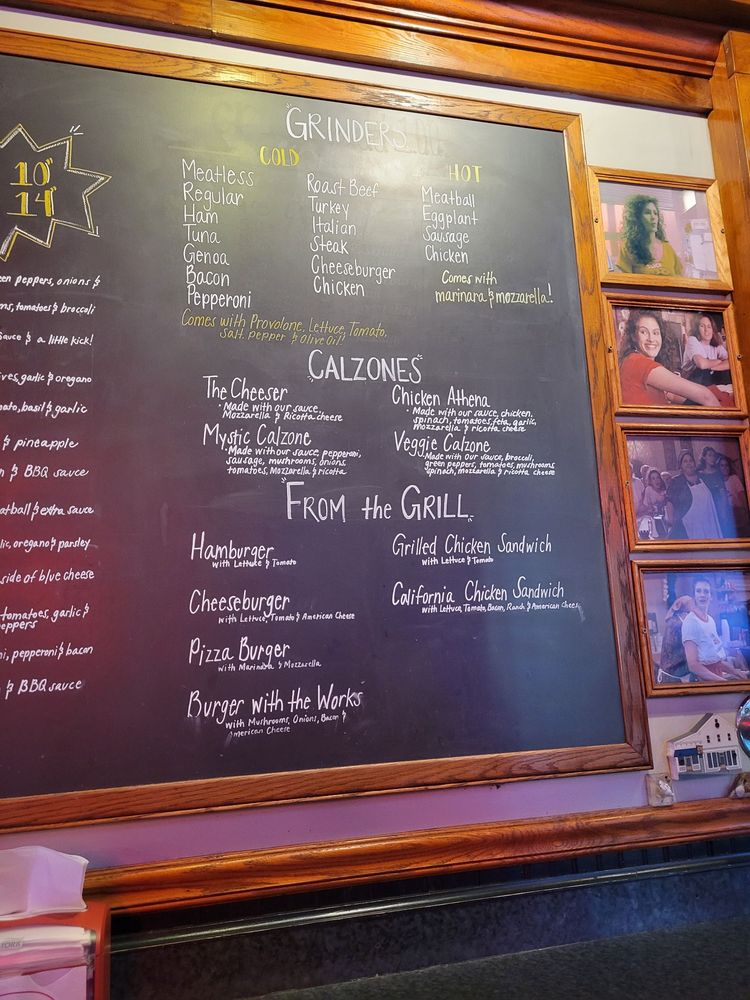 10"
14"
en peppers, onions &
ms, tomatoes & broccoli
sauce & a little kick!
ives, garlic & oregano
ato, basil & garlic
& pineapple
& BBQ sauce
atball & extra sauce
lic, oregano & parsley
side of blue cheese
tomatoes, garlic &
eppers
ni, pepperoni & bacon
& BBQ sauce
"GRINDERS"
COLD
Meatless
Regular
Ham
Tuna
Genoa
Bacon
Pepperoni
Roast Beef
Turkey
Italian
Steak
Cheeseburger
Chicken
Comes with Provolone, Lettuce, Tomato,
salt, pepper & olive oil!
HOT
Meatball
Eggplant
Sausage
Chicken
Comes with
marinara & mozzarella!
"CALZONES"
The Cheeser
• Made with our sauce,
Mozzarella & Ricotta cheese
Mystic Calzone
• Made with our sauce, pepperoni,
sausage, mushrooms, onions
tomatoes, Mozzarella & ricotta
Chicken Athena
• Made with our sauce, chicken,
spinach, tomatoes, feta, garlic,
mozzarella & ricotta cheese
Veggie Calzone
Made with our sauce, broccoli,
green peppers, tomatoes, mushrooms
spinach, mozzarella & ricotta cheese
"FROM the GRILL"
Hamburger
with Lettuce & Tomato
Cheeseburger
with Lettuce, Tomato & American Cheese
Pizza Burger
with Marinara & Mozzarella
Burger with the Works
with Mushrooms, Onions, Bacon &
American Cheese
Grilled Chicken Sandwich
with Lettuce & Tomato
California Chicken Sandwich
with Lettuce, Tomato, Bacon, Ranch & American Cheese